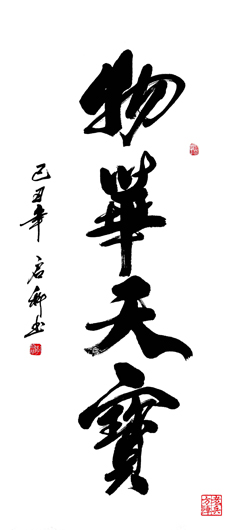 物華天寶
己丑年 启乡书